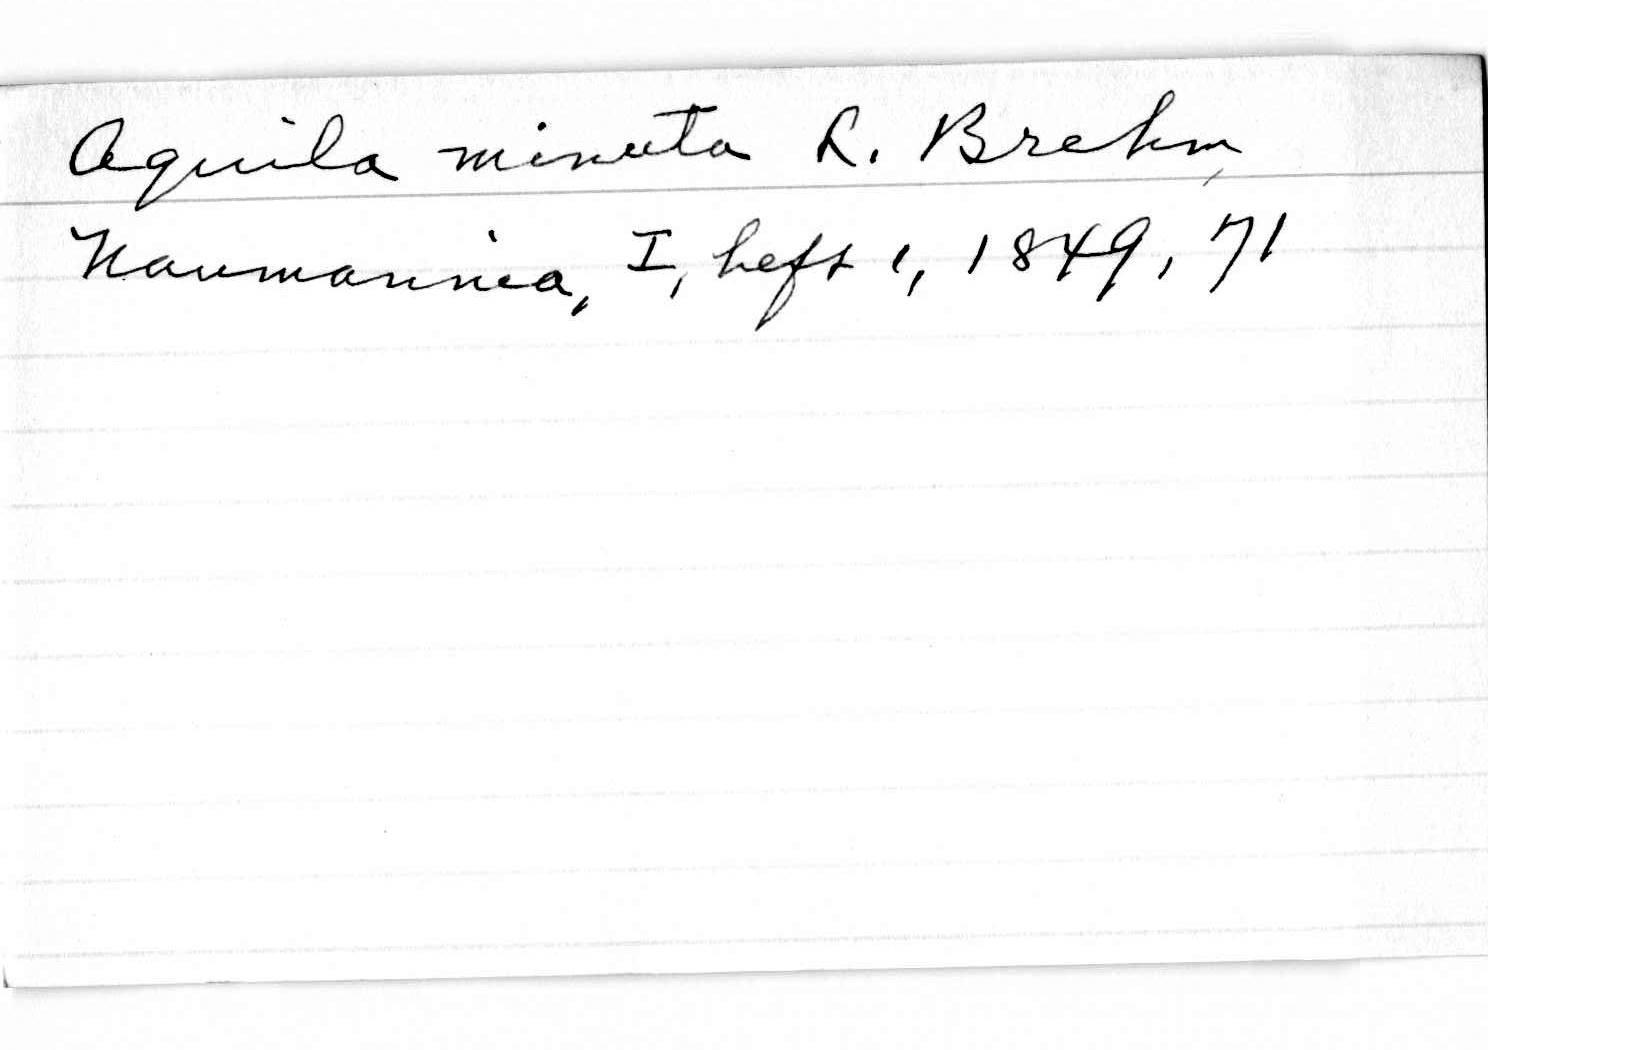 Aquila minuta R. Brehm,
Naumannia, I, heft 1, 1849, 71